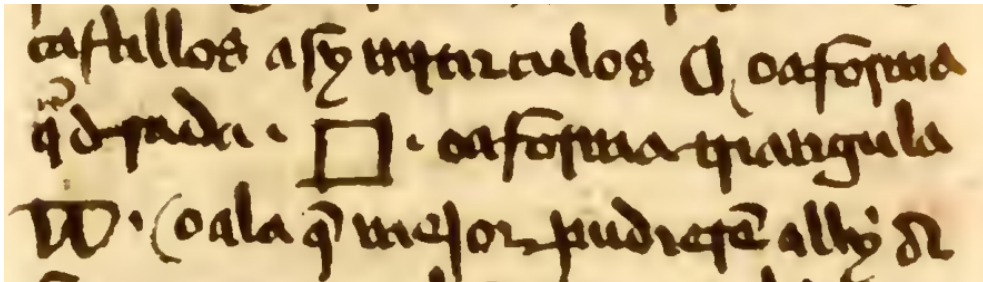 castillos asy mitirculos ¶ oaforma
q̃drada · □ · oaforma triangula
· oala q̃ mejor pudierẽ ally